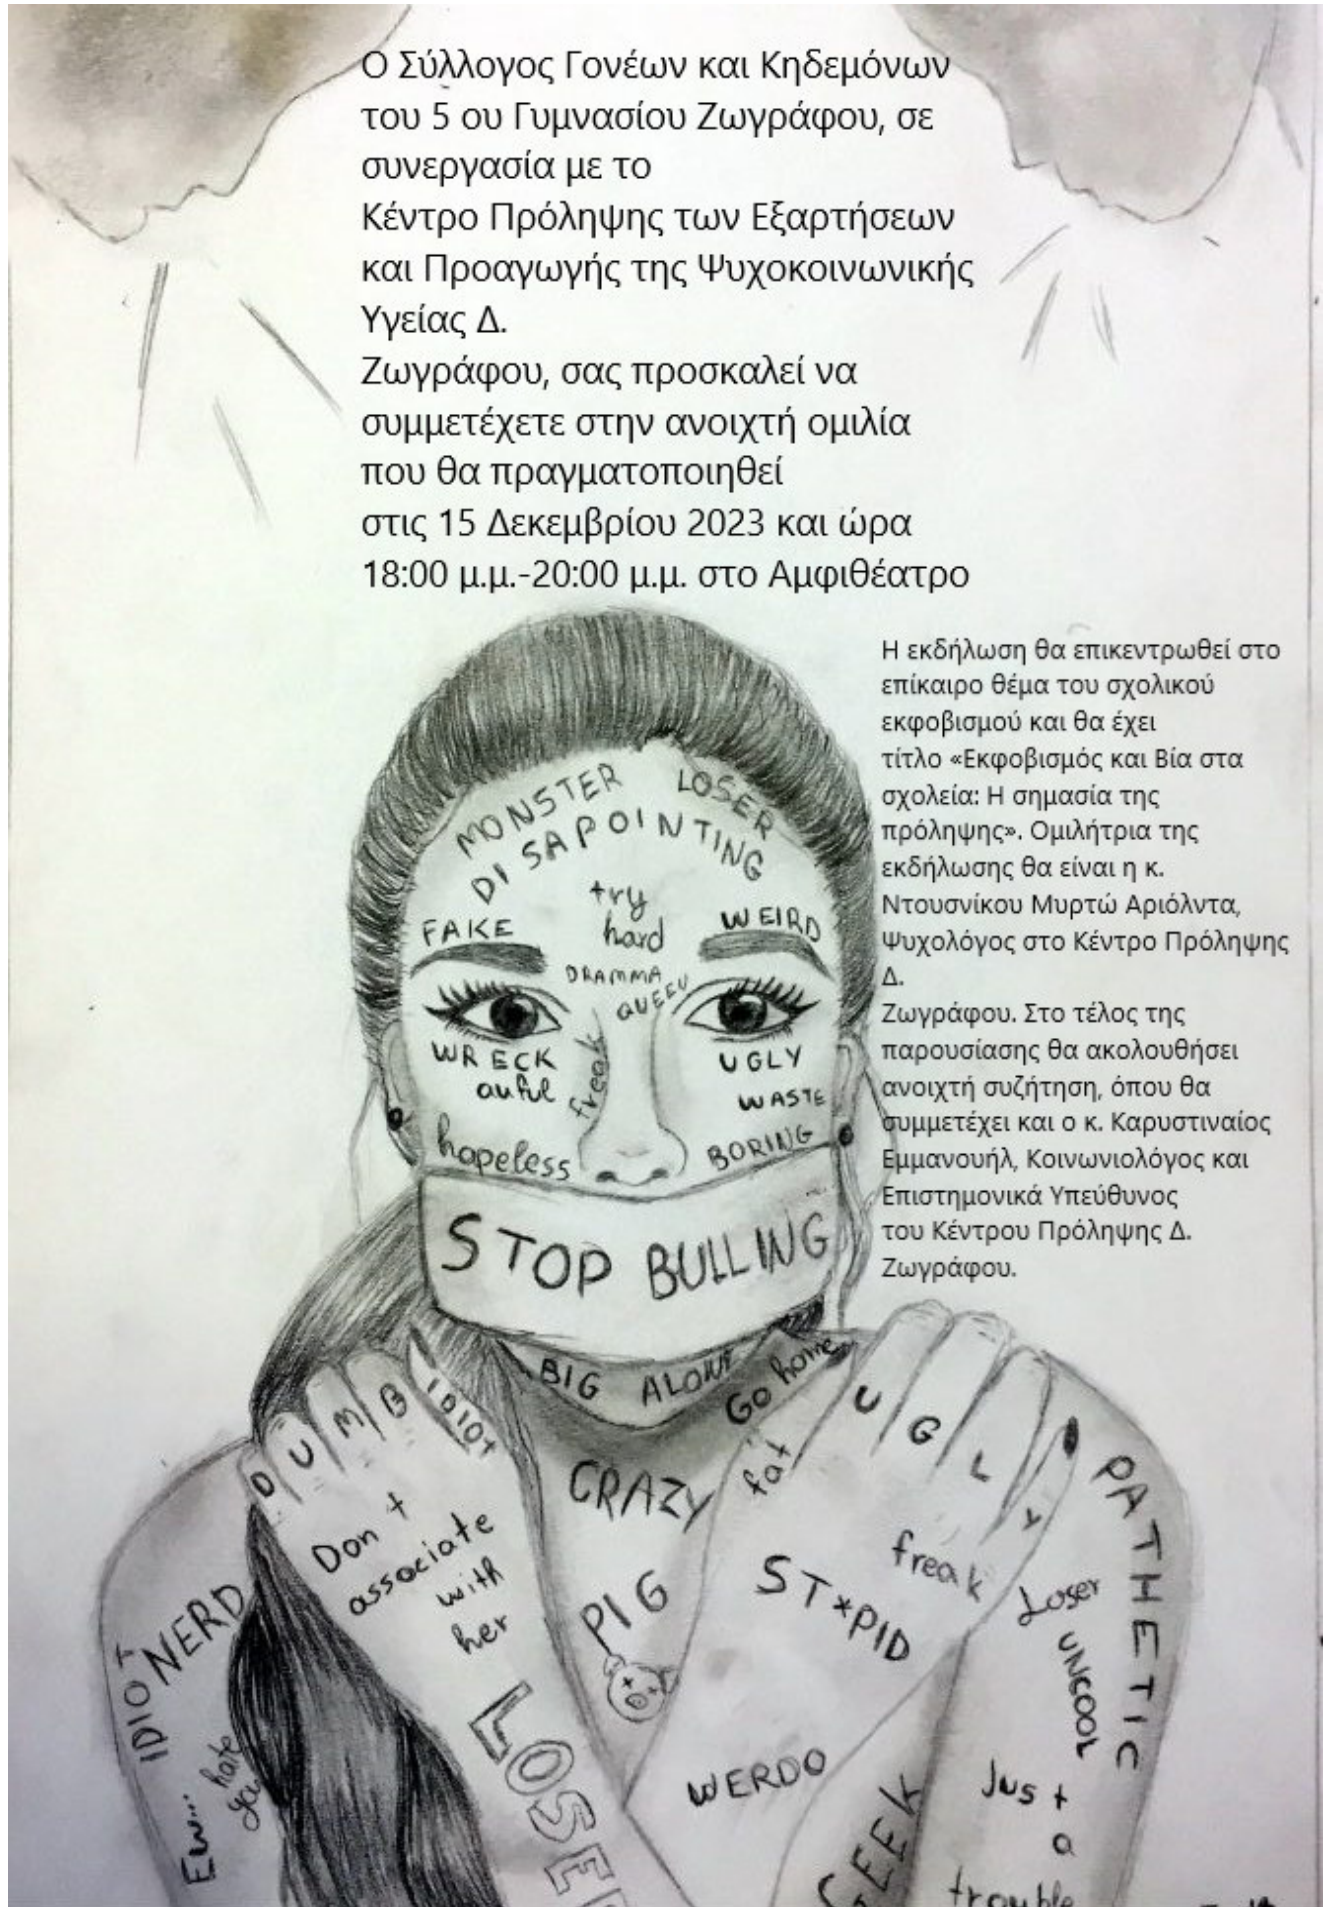 Ο Σύλλογος Γονέων και Κηδεμόνων
του 5 ου Γυμνασίου Ζωγράφου, σε
συνεργασία με το
Κέντρο Πρόληψης των Εξαρτήσεων
και Προαγωγής της Ψυχοκοινωνικής
Υγείας Δ.
Ζωγράφου, σας προσκαλεί να
συμμετέχετε στην ανοιχτή ομιλία
που θα πραγματοποιηθεί
στις 15 Δεκεμβρίου 2023 και ώρα
18:00 μ.μ.-20:00 μ.μ. στο Αμφιθέατρο
Η εκδήλωση θα επικεντρωθεί στο
επίκαιρο θέμα του σχολικού
εκφοβισμού και θα έχει
τίτλο «Εκφοβισμός και Βία στα
σχολεία: Η σημασία της
πρόληψης». Ομιλήτρια της
εκδήλωσης θα είναι η κ.
Ντουσνίκου Μυρτώ Αριόλντα,
Ψυχολόγος στο Κέντρο Πρόληψης
Δ.
Ζωγράφου. Στο τέλος της
παρουσίασης θα ακολουθήσει
ανοιχτή συζήτηση, όπου θα
συμμετέχει και ο κ. Καρυστιναίος
Εμμανουήλ, Κοινωνιολόγος και
Επιστημονικά Υπεύθυνος
του Κέντρου Πρόληψης Δ.
Ζωγράφου.
MONSTER LOSER
DISAPOINTING
try
hard
FAKE
WEIRD
DRAMMA
QUEEN
WRECK
auful
freak
UGLY
WASTE
hopeless
BORING
STOP BULLING
BIG ALONE
Go home
DUMB
IDIOT
UGLY
fat
CRAZY
Don t
associate
with
her
PIG
ST*PID
freak
Loser
UNCOOL
PATHETIC
NERD
IDIOT
Ew...
hate
you
WERDO
GEEK
Just
a
trouble